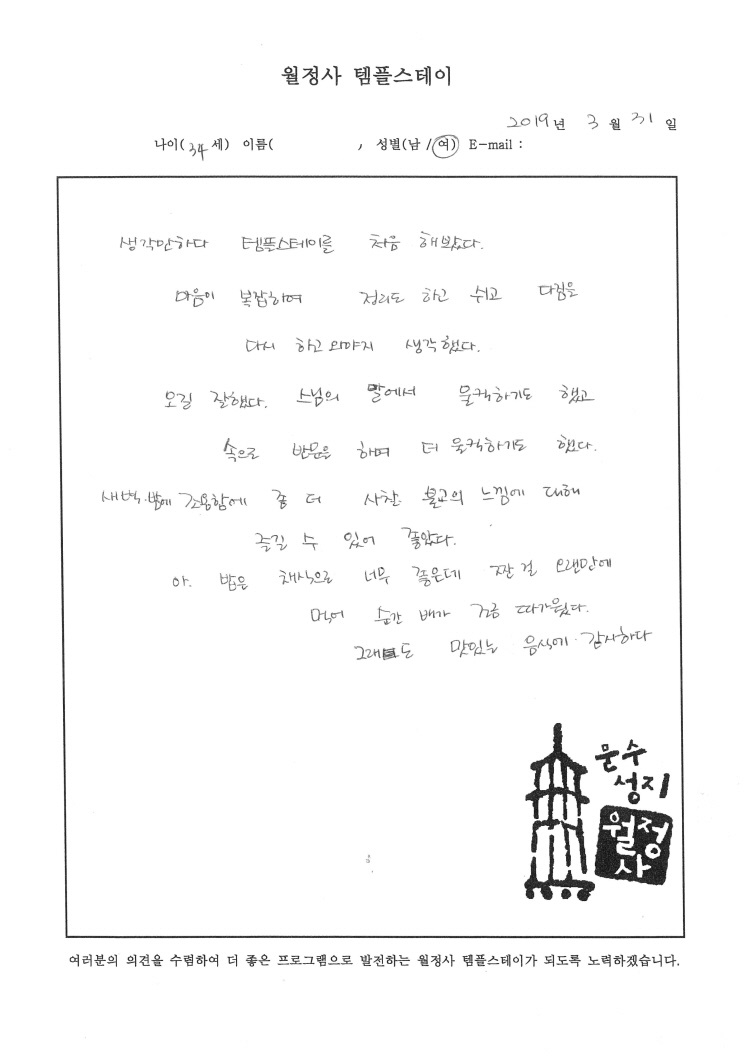 월정사 템플스테이
2019년 3월 31일
나이(34세) 이름( , 성별(남 /여) E-mail :
생각만하다 템플스테이를 처음 해봤다.
마음이 복잡하여 정리도 하고 쉬고 다짐을
다시 하고 와야지 생각했다.
오길 잘했다. 스님의 말에서 뭉클하기도 했고
속으로 반문을 하며 더 뭉클하기도 했다.
새벽·밤에 조용함에 좀 더 사찰 불교의 느낌에 대해
즐길 수 있어 좋았다.
아. 밥은 채식으로 너무 좋은데 짠 걸 오랜만에
먹어 순간 배가 조금 따가웠다.
그래도 맛있는 음식에 감사하다
문수
성지
월정
사
여러분의 의견을 수렴하여 더 좋은 프로그램으로 발전하는 월정사 템플스테이가 되도록 노력하겠습니다.